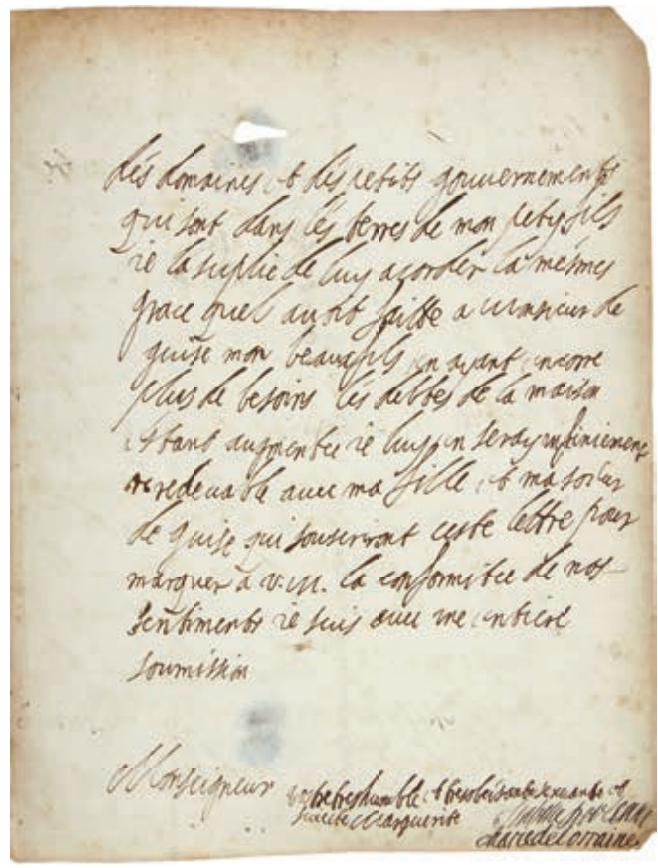 des domaines et des petits gouvernements
qui sont dans les terres de mon petyfils
ie la suplie de luy acorder la mesmes
grace quel auoit faitte a monsieur de
guise mon beaufils en ayant encorre
plus de besoins les debtes de la maison
estant augmentee ie luy en seray infiniement
redeuable auec ma fille et ma soeur
de guise qui souscriront ceste lettre pour
marquer a v.m. la conformitee de nos
sentiments ie suis auec vne entiere
soumission
Monseigneur
vostre tres humble et tres obeisante seruante et
suiette Marguerite
marie de lorraine